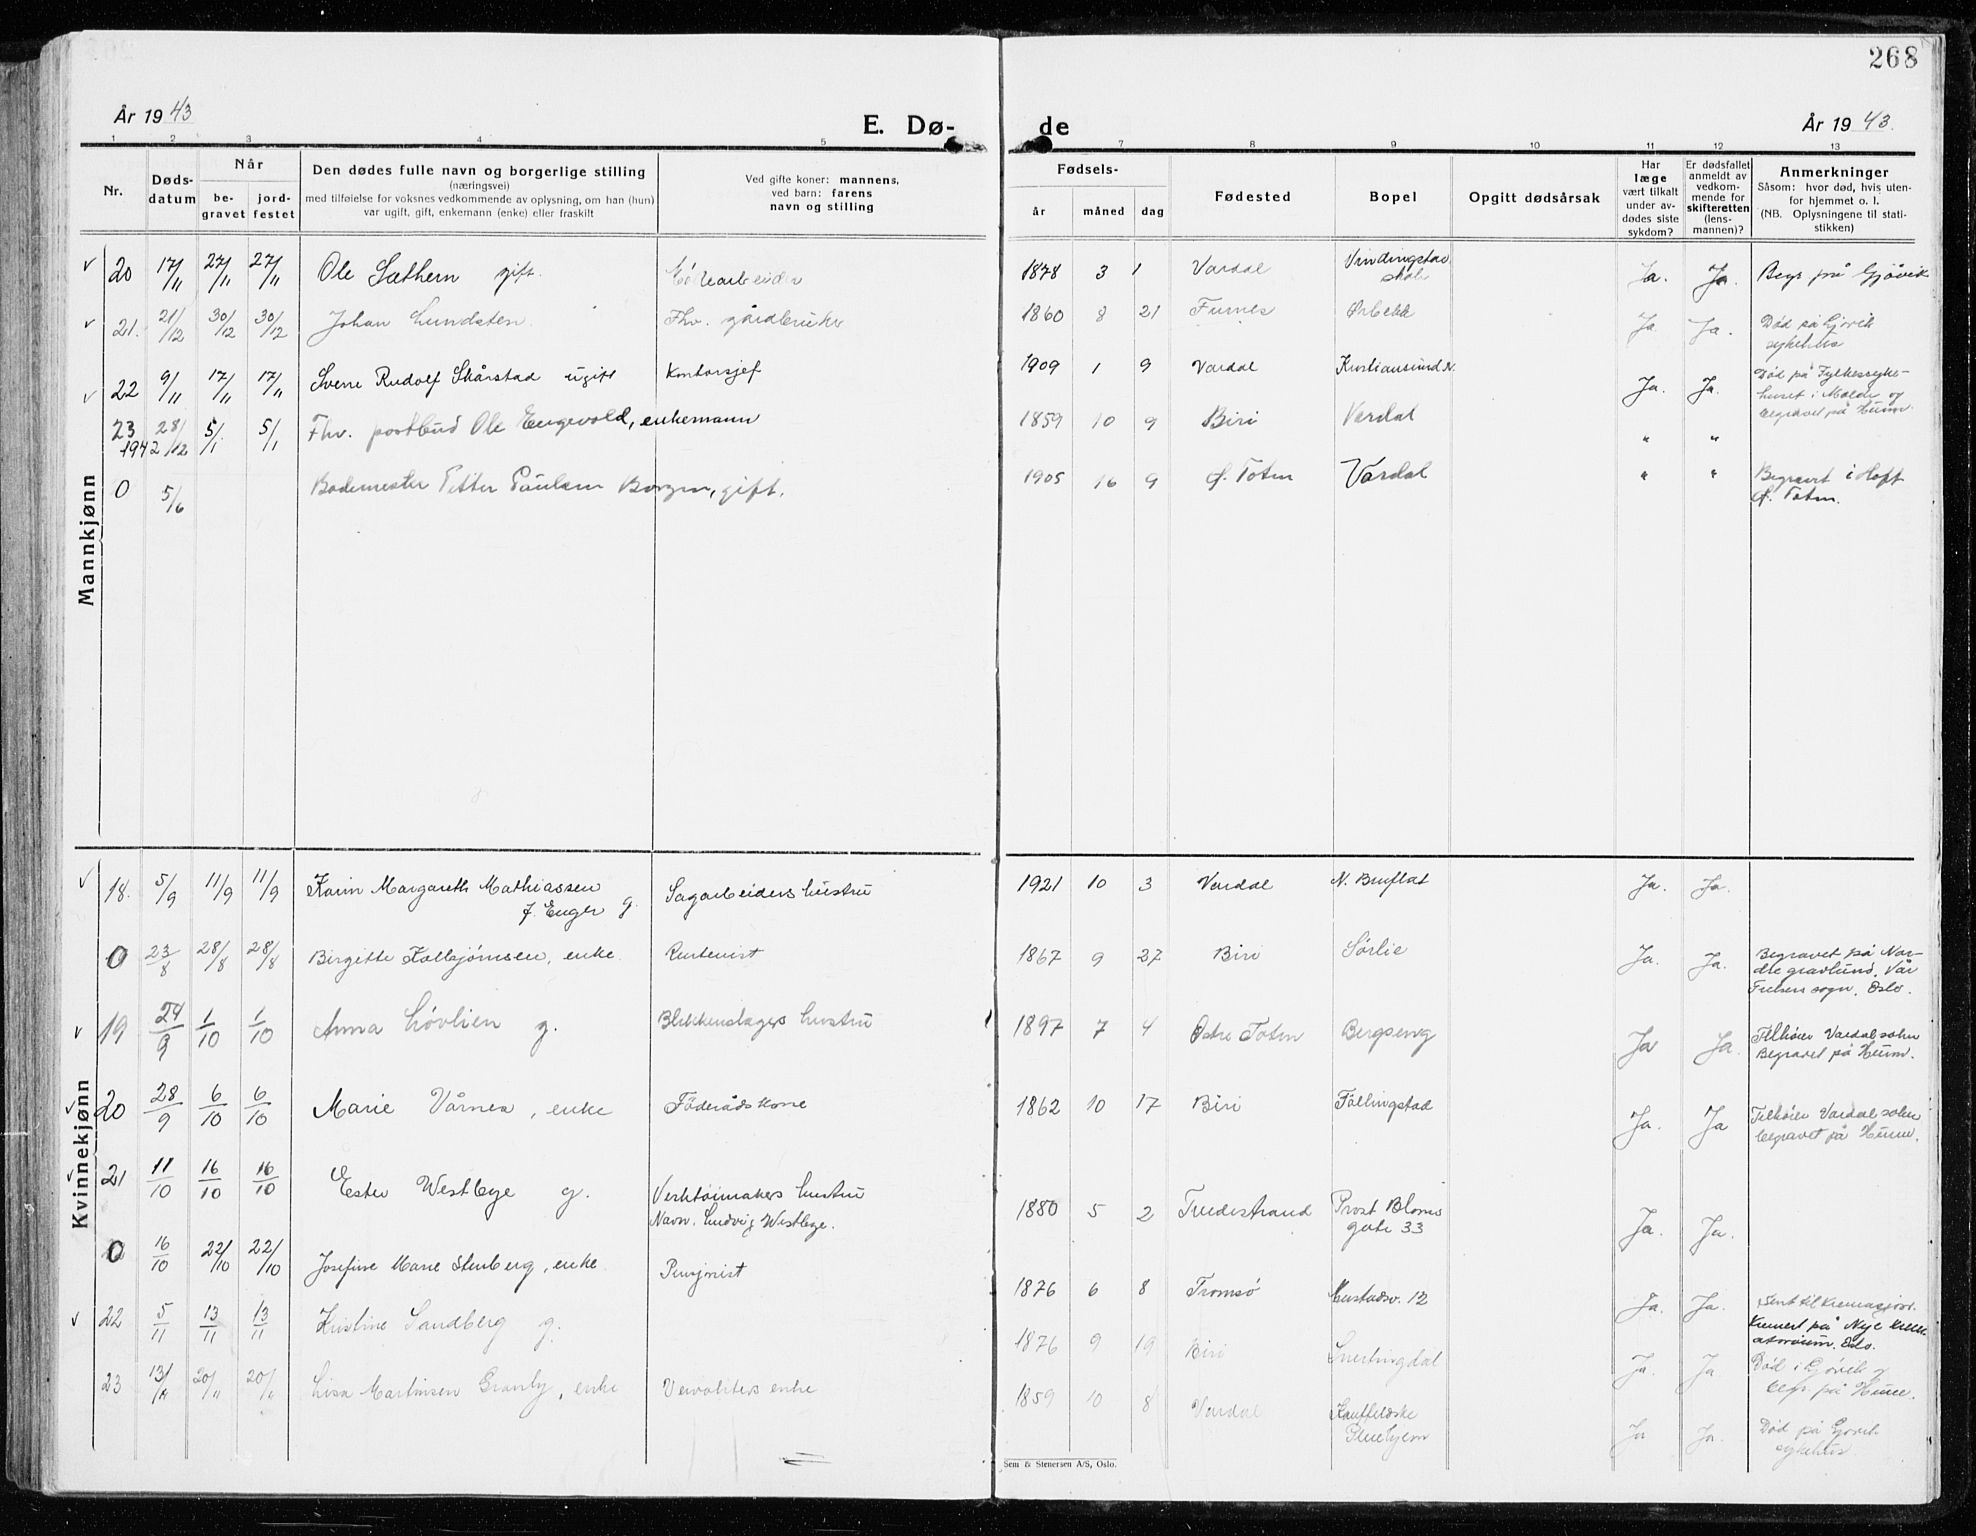 268
År 1943
E. Dø-
de
År 1943.
1 2 3 4 5 7 8 9 10 11 12 13
Nr.
Døds-
datum
Når
be-
gravet
jord-
festet
Den dødes fulle navn og borgerlige stilling
(næringsvei)
med tilføielse for voksnes vedkommende av oplysning, om han (hun)
var ugift, gift, enkemann (enke) eller fraskilt
Ved gifte koner: mannens,
ved barn: farens
navn og stilling
Fødsels-
år måned dag
Fødested
Bopel
Opgitt dødsårsak
Har
læge
vært tilkalt
under av-
dødes siste
sykdom?
Er dødsfallet
anmeldt av
vedkom-
mende for
skifteretten
(lens-
mannen)?
Anmerkninger
Såsom: hvor død, hvis uten-
for hjemmet o. l.
(NB. Oplysningene til stati-
stikken)
Mannkjønn
20 17/11 27/11 27/11 Ole Sæthern gift. 1878 3 1 Vardal Ja. Ja. Begr på Gjøvik
21. 21/12 30/12 30/12 Johan Lundsten. Fhv. gårdbruker 1860 8 21 Furnes Ørbekk Ja Ja. Død på Gjøvik
sykehus
22 9/11 17/11 17/11 Sverre Rudolf Skårstad ugift Kontorsjef 1909 1 9 Vardal Kristiansund N. Ja. Ja. Død på Fylkessyke-
huset i Molde og
begravet på Hunn.
23 28/12 1942 5/1 5/1 Fhv. postbud Ole Engevold, enkemann 1859 10 9 Biri Vardal " "
0 5/6 Bademester Petter Paulsen Borgen, gift. 1905 16 9 Ø. Toten Vardal " " Begravet i Hoff
Ø. Toten.
Kvinnekjønn
18. 5/9 11/9 11/9 Karin Margareth Mathiassen
f. Enger g. Sagarbeiders hustru 1921 10 3 Vardal N. Bruflat Ja. Ja.
0 23/8 28/8 28/8 Birgitte Kolbjørnsen, enke. Rentenist 1867 9 27 Biri Sørlie Ja. Ja. Begravet på Nor-
dre gravlund, Vår
Frelsers sogn, Oslo.
19 24/9 1/10 1/10 Anna Løvlien g. Blikkenslagers hustru 1897 7 4 Østre Toten Bergseng Ja Ja. Tilhører Vardal sokn
Begravet på Hunn.
20 28/9 6/10 6/10 Marie Vårnes, enke Föderådskone 1862 10 17 Biri Fällingstad Ja. Ja Tilhører Vardal sokn
begravet på Hunn.
21 11/10 16/10 16/10 Ester Westbye g. Verktøimakers hustru
Navn. Ludvig Westbye. 1880 5 2 Tvedestrand Prost Bloms
gate 33 Ja. Ja.
0 16/10 22/10 22/10 Josefine Marie Stenberg, enke Pensjonist 1876 6 8 Tromsø Mustadsv. 12 Ja. Ja. Sent til kremasjon.
Kremert på Nye krem-
atorium. Oslo.
22 5/11 13/11 13/11 Kristine Sandberg g. 1876 9 19 Biri Snertingdal Ja. Ja Død i Gjøvik og
begr. på Hunn.
23 13/11 20/11 20/11 Lisa Martinsen Granly, enke enke 1859 10 8 Vardal Kauffeldske
Pleiehjem Ja Ja. Død på Gjøvik
sykehus.
Sem & Stenersen A/S, Oslo.